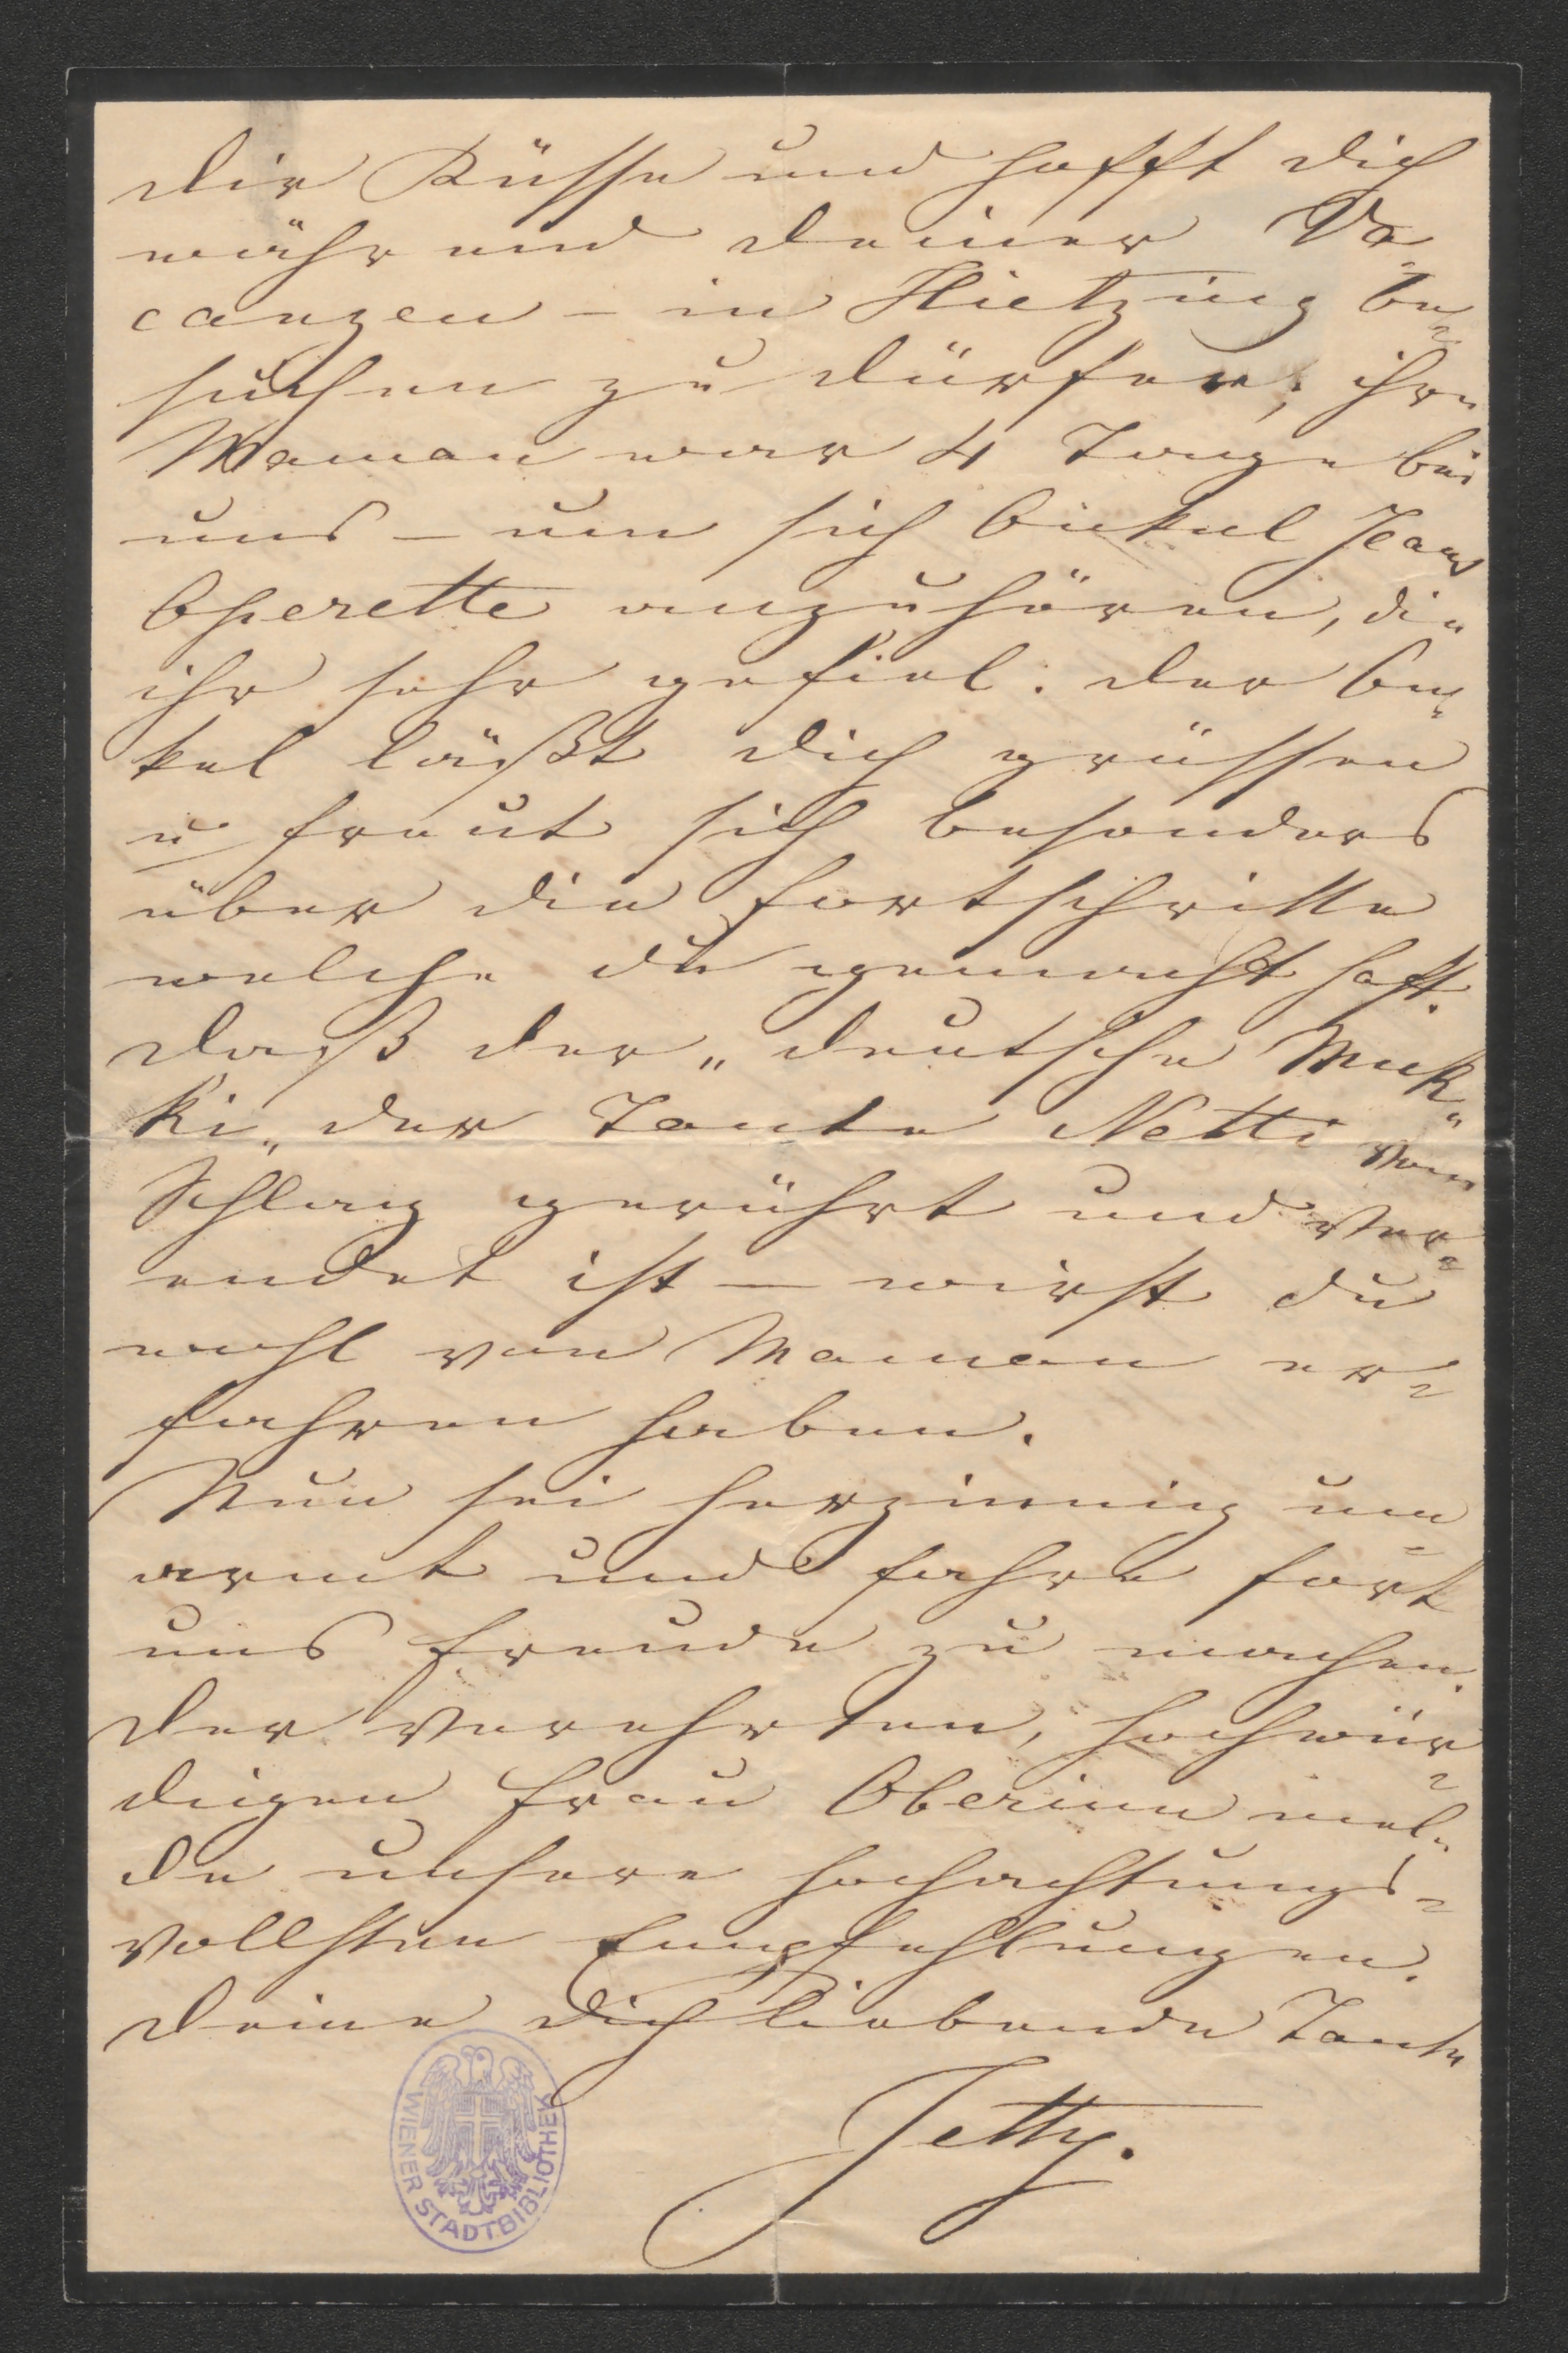 dir Küsse und hofft dich
während deiner Va=
canzen – in Hietzing be=
suchen zu dürfen; ihre
Maman war 4 Tage bei
uns – um sich Onkel Jeans
Operette anzuhören, die
ihr sehr gefiel. der On=
kel läßt dich grüssen
u freut sich besonders
über die Fortschritte
welche du gemacht hast.
daß der „deutsche Muk=
ki„ der Tante Netti vom
Schlag gerührt und ver=
endet ist – wirst du
wohl von Maman er=
fahren haben.
Nun sei herzinnig um=
armt und fahre fort
uns Freude zu machen.
der verehrten, hochwür=
digen Frau Oberinn mel=
de unsere hochachtungs=
vollsten Empfehlungen.
deine dich liebende Tante
Jetty.
WIENER STADTBIBLIOTHEK